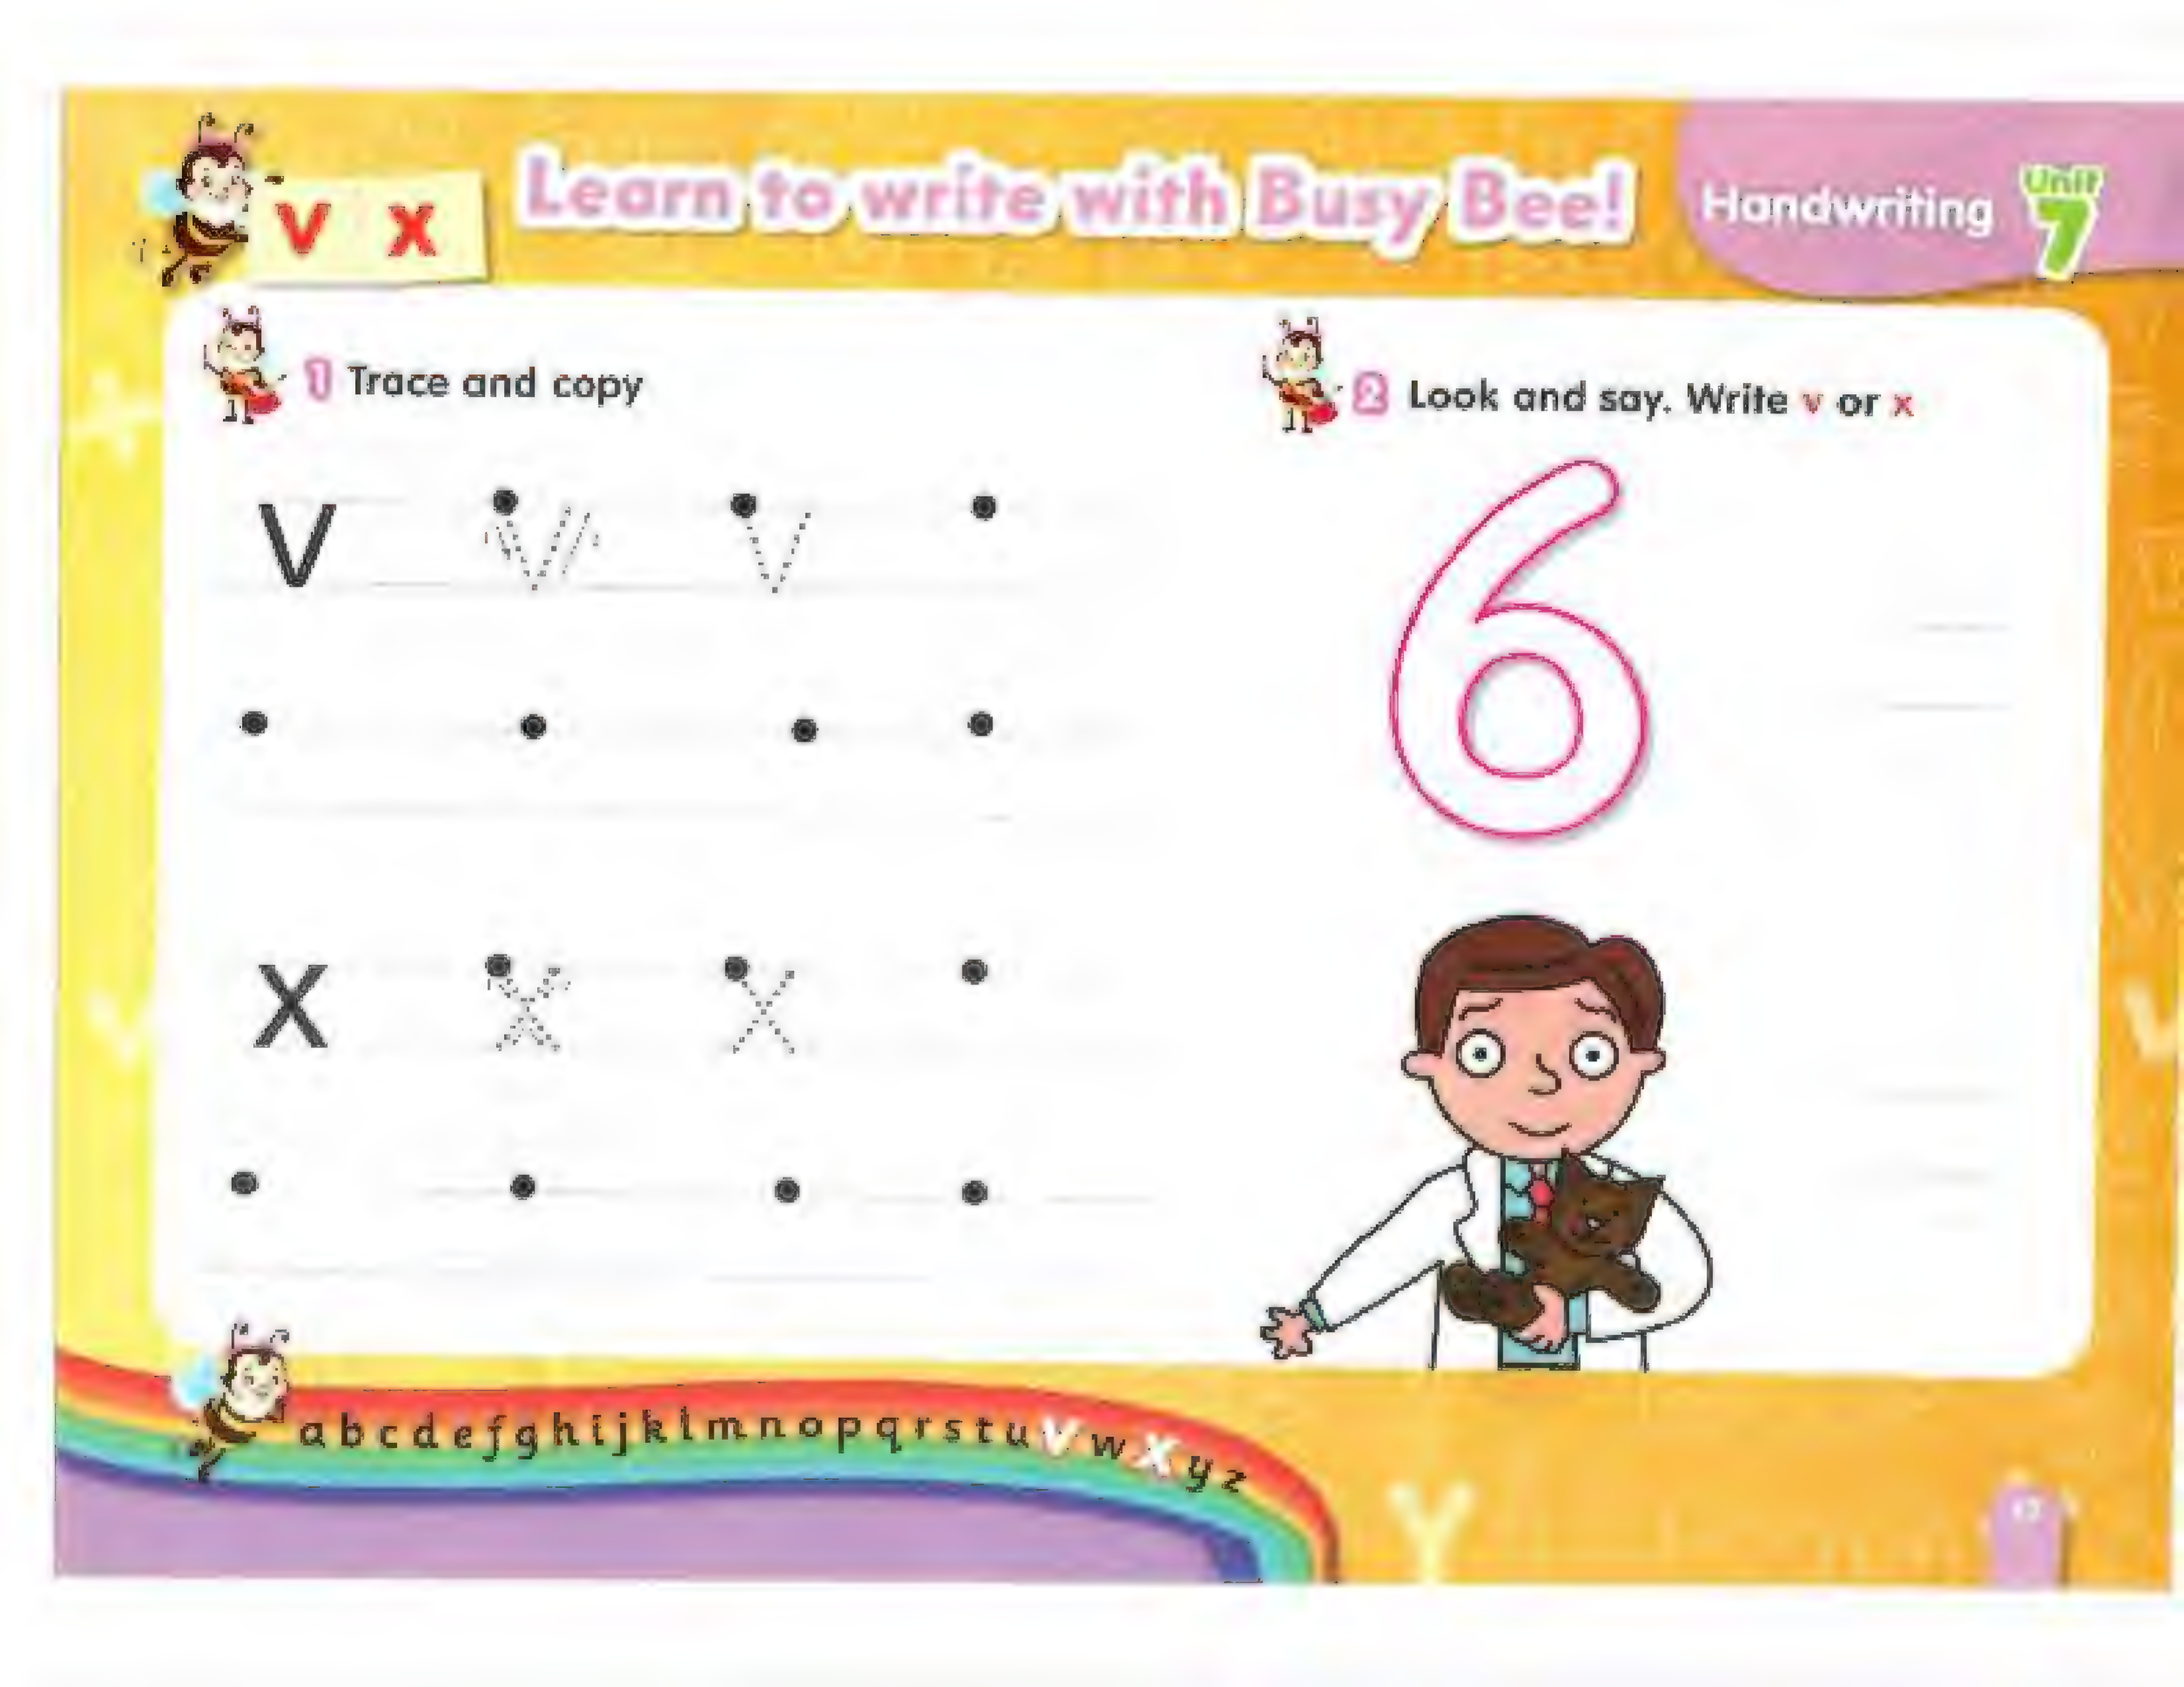 v x
Learn to write with Busy Bee!
Handwriting
Unit
7
1 Trace and copy
v v v
x x x
2 Look and say. Write v or x
6
a b c d e f g h i j k l m n o p q r s t u v w x y z